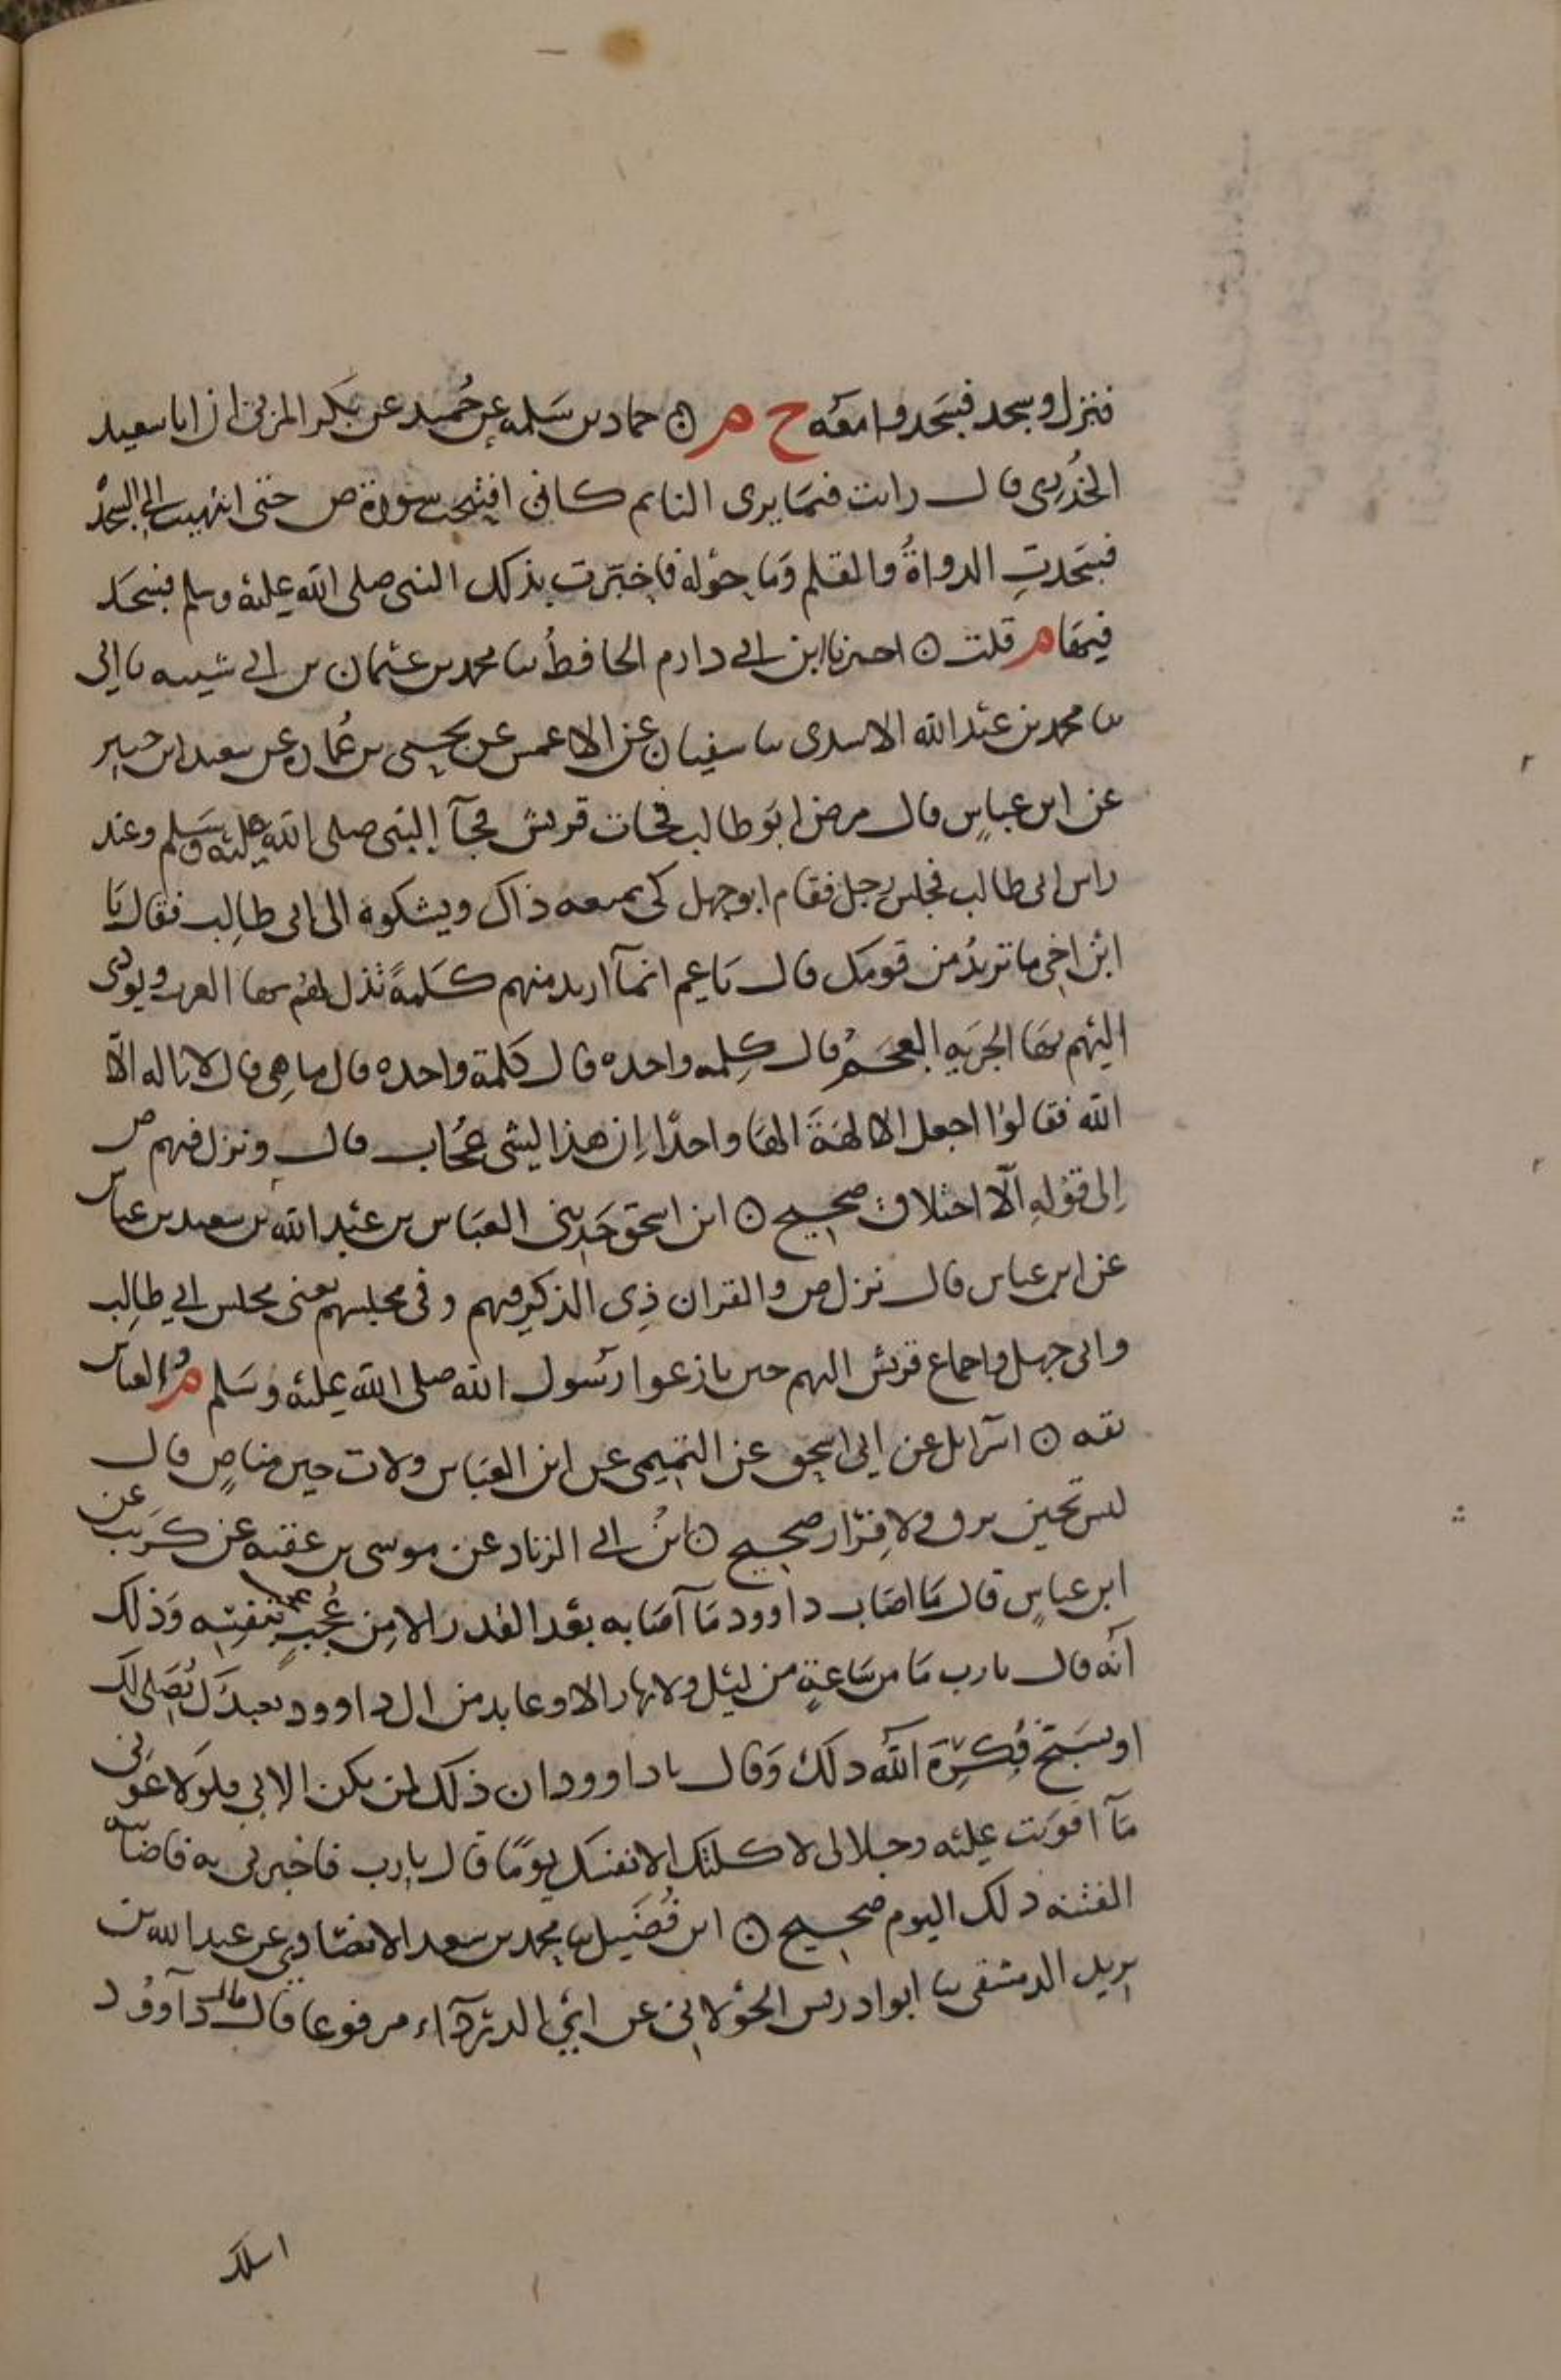 فنزل وسجد فسجدوا معه خ م ۞ حماد بن سلمه عن حميد عن بكر المزني ان ابا سعيد
الخدري قال رايت فيما يرى النائم كاني افتتحت سورة ص حتى انتهيت الى السجد
فسجدت الدواة والقلم وما حوله فاخبرت بذلك النبي صلى الله عليه وسلم فسجد
فيها م قلت ۞ اخبرنا ابن ابي دارم الحافظ ثنا محمد بن عثمان بن ابي شيبه نا ابي
ثنا محمد بن عبد الله الاسدي ثنا سفيان عن الاعمش عن يحيى بن عماره عن سعيد ابن جبير
عن ابن عباس قال مرض ابو طالب فجات قريش فجآ النبي صلى الله عليه وسلم وعند
راس ابي طالب فجلس رجل فقام ابو جهل كي يمنعه ذاك ويشكوه الى ابي طالب فقال يا
ابن اخي ما تريد من قومك قال يا عم انمآ اريد منهم كلمة تذل لهم بها العرب ويودى
اليهم بها الجزيه العجم قال كلمه واحده قال كلمة واحده قال ما هي قال لا اله الا
الله فقالوا اجعل الالهة الها واحدا ان هذا لشي عجاب قال ونزل فيهم ص
الى قوله الا اختلاق صحيح ۞ ابن اسحق حدثني العباس بن عبد الله بن سعيد بن عباس
عن ابن عباس قال نزل ص والقران ذي الذكر فيهم وفي مجلسهم يعني مجلس ابي طالب
وابي جهل واجماع قريش اليهم حين نازعوا رسول الله صلى الله عليه وسلم م العباس
ثقه ۞ اسرآيل عن ابي اسحق عن التميمي عن ابن العباس ولات حين مناص قال
ليس بحين نزو ولا فرار صحيح ۞ ابن ابي الزناد عن موسى بن عقبه عن كريب عن
ابن عباس قال ما اصاب داوود مآ اصابه بعد القدر الا من عجب بنفسه وذلك
انه قال يارب ما من ساعة من ليل ولا نهار الا وعابد من ال داوود يعبدك يصلي لك
او يسبح فكره الله ذلك وقال يا داوود ان ذلك لمن يكن الا بي فلولا عوني
مآ اقويت عليه وجلالي لا كلنك الا نفسك يوما قال يارب فاخبرني به فاصابته
الفتنه ذلك اليوم صحيح ۞ ابن فضيل ثنا محمد بن سعد الانصاري عن عبد الله بن
يزيد الدمشقي ثنا ابو ادريس الخولاني عن ابي الدردآء مرفوعا قال قال داوود
اسلك